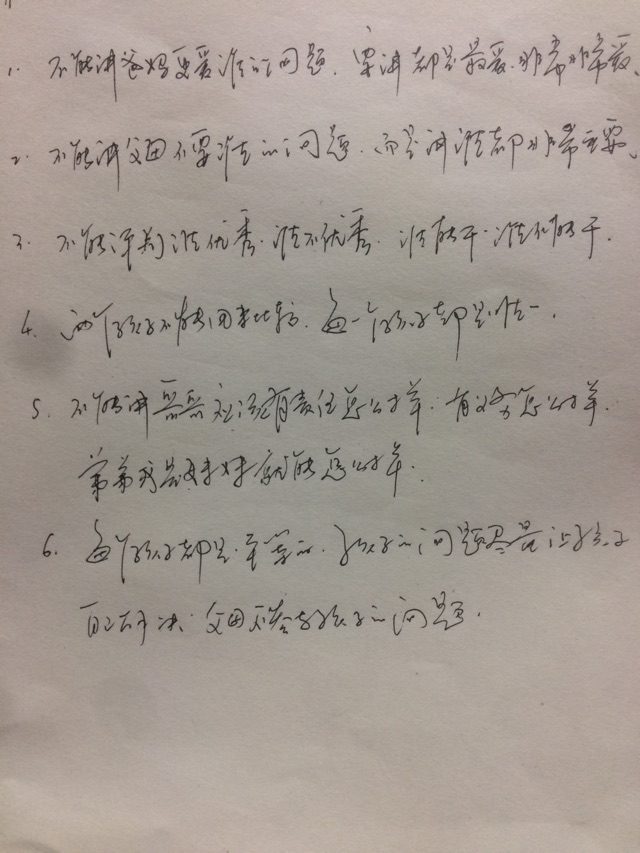 1. 不能讲爸妈更爱谁的问题.要讲都是最爱.非常非常爱.
2. 不能讲父母不要谁的问题.而是讲谁都非常重要.
3. 不能评判谁优秀.谁不优秀.谁能干.谁不能干.
4. 两个孩子不能用来比较.每一个孩子都是唯一.
5. 不能讲 应该有责任怎么样.有义务怎么样.
弟弟或是妹妹就能怎么样.
6. 每个孩子都是平等的.孩子的问题尽量让孩子
自己解决.父母不参与孩子的问题.